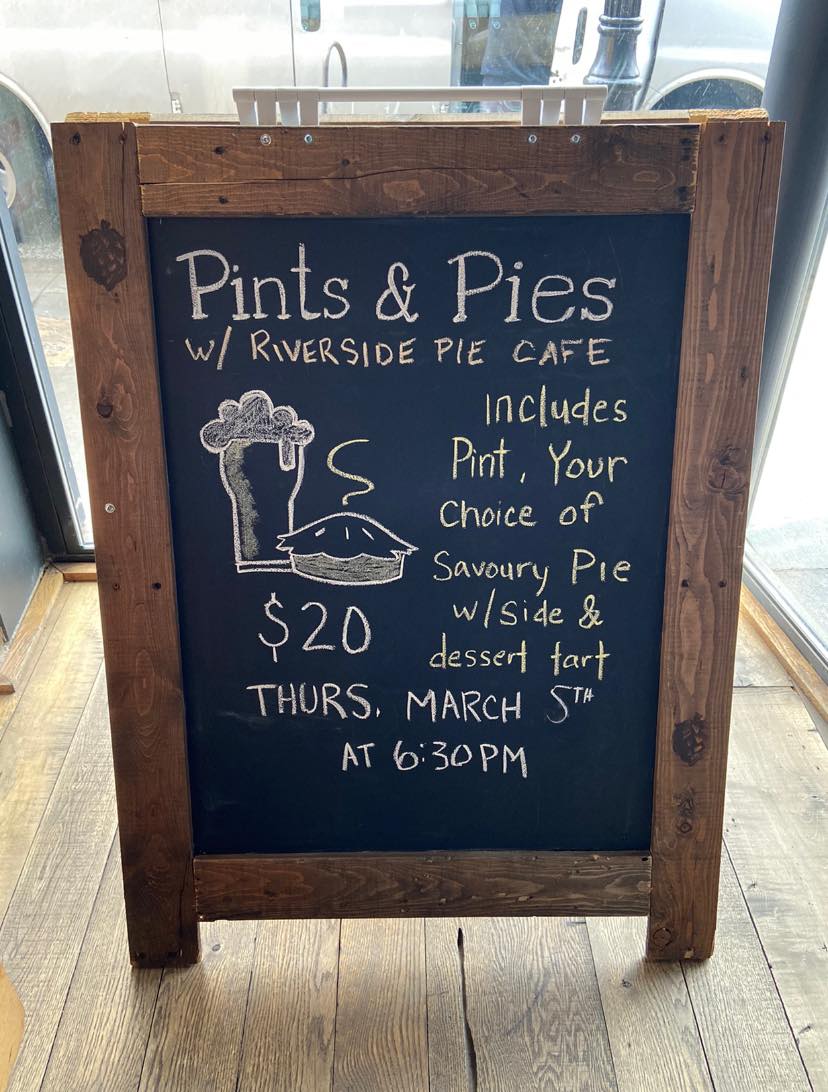 Pints & Pies
W/ RIVERSIDE PIE CAFE
Includes
Pint, Your
Choice of
Savoury Pie
w/side &
dessert tart
$20
THURS, MARCH 5TH
AT 6:30PM